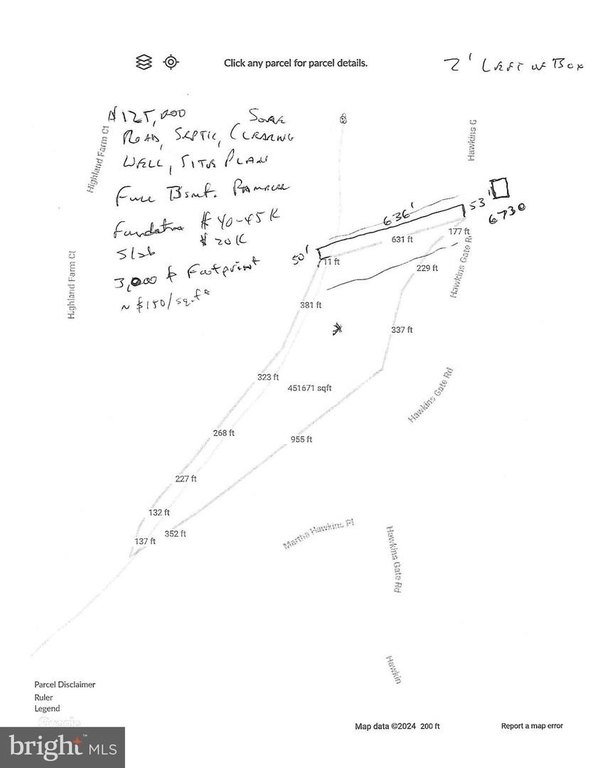 Click any parcel for parcel details.
2' LEFT OF BOX
$125,000
ROAD, SEPTIC, CLEARING
WELL, SITE PLAN
FULL BSMT.
Foundation $40-45K
Slab $20K
3,000 Footprint
~ $150/sq.ft
Highland Farm Ct
Highland Farm Ct
Hawkins G
636'
53'
6730
50'
11 ft
631 ft
177 ft
229 ft
Hawkins Gate Rd
381 ft
337 ft
323 ft
451671 sqft
Hawkins Gate Rd
268 ft
955 ft
227 ft
132 ft
352 ft
137 ft
Martha Hawkins Pl
Hawkins Gate Rd
Hawkin
Parcel Disclaimer
Ruler
Legend
Google
Map data ©2024 200 ft
Report a map error
bright MLS